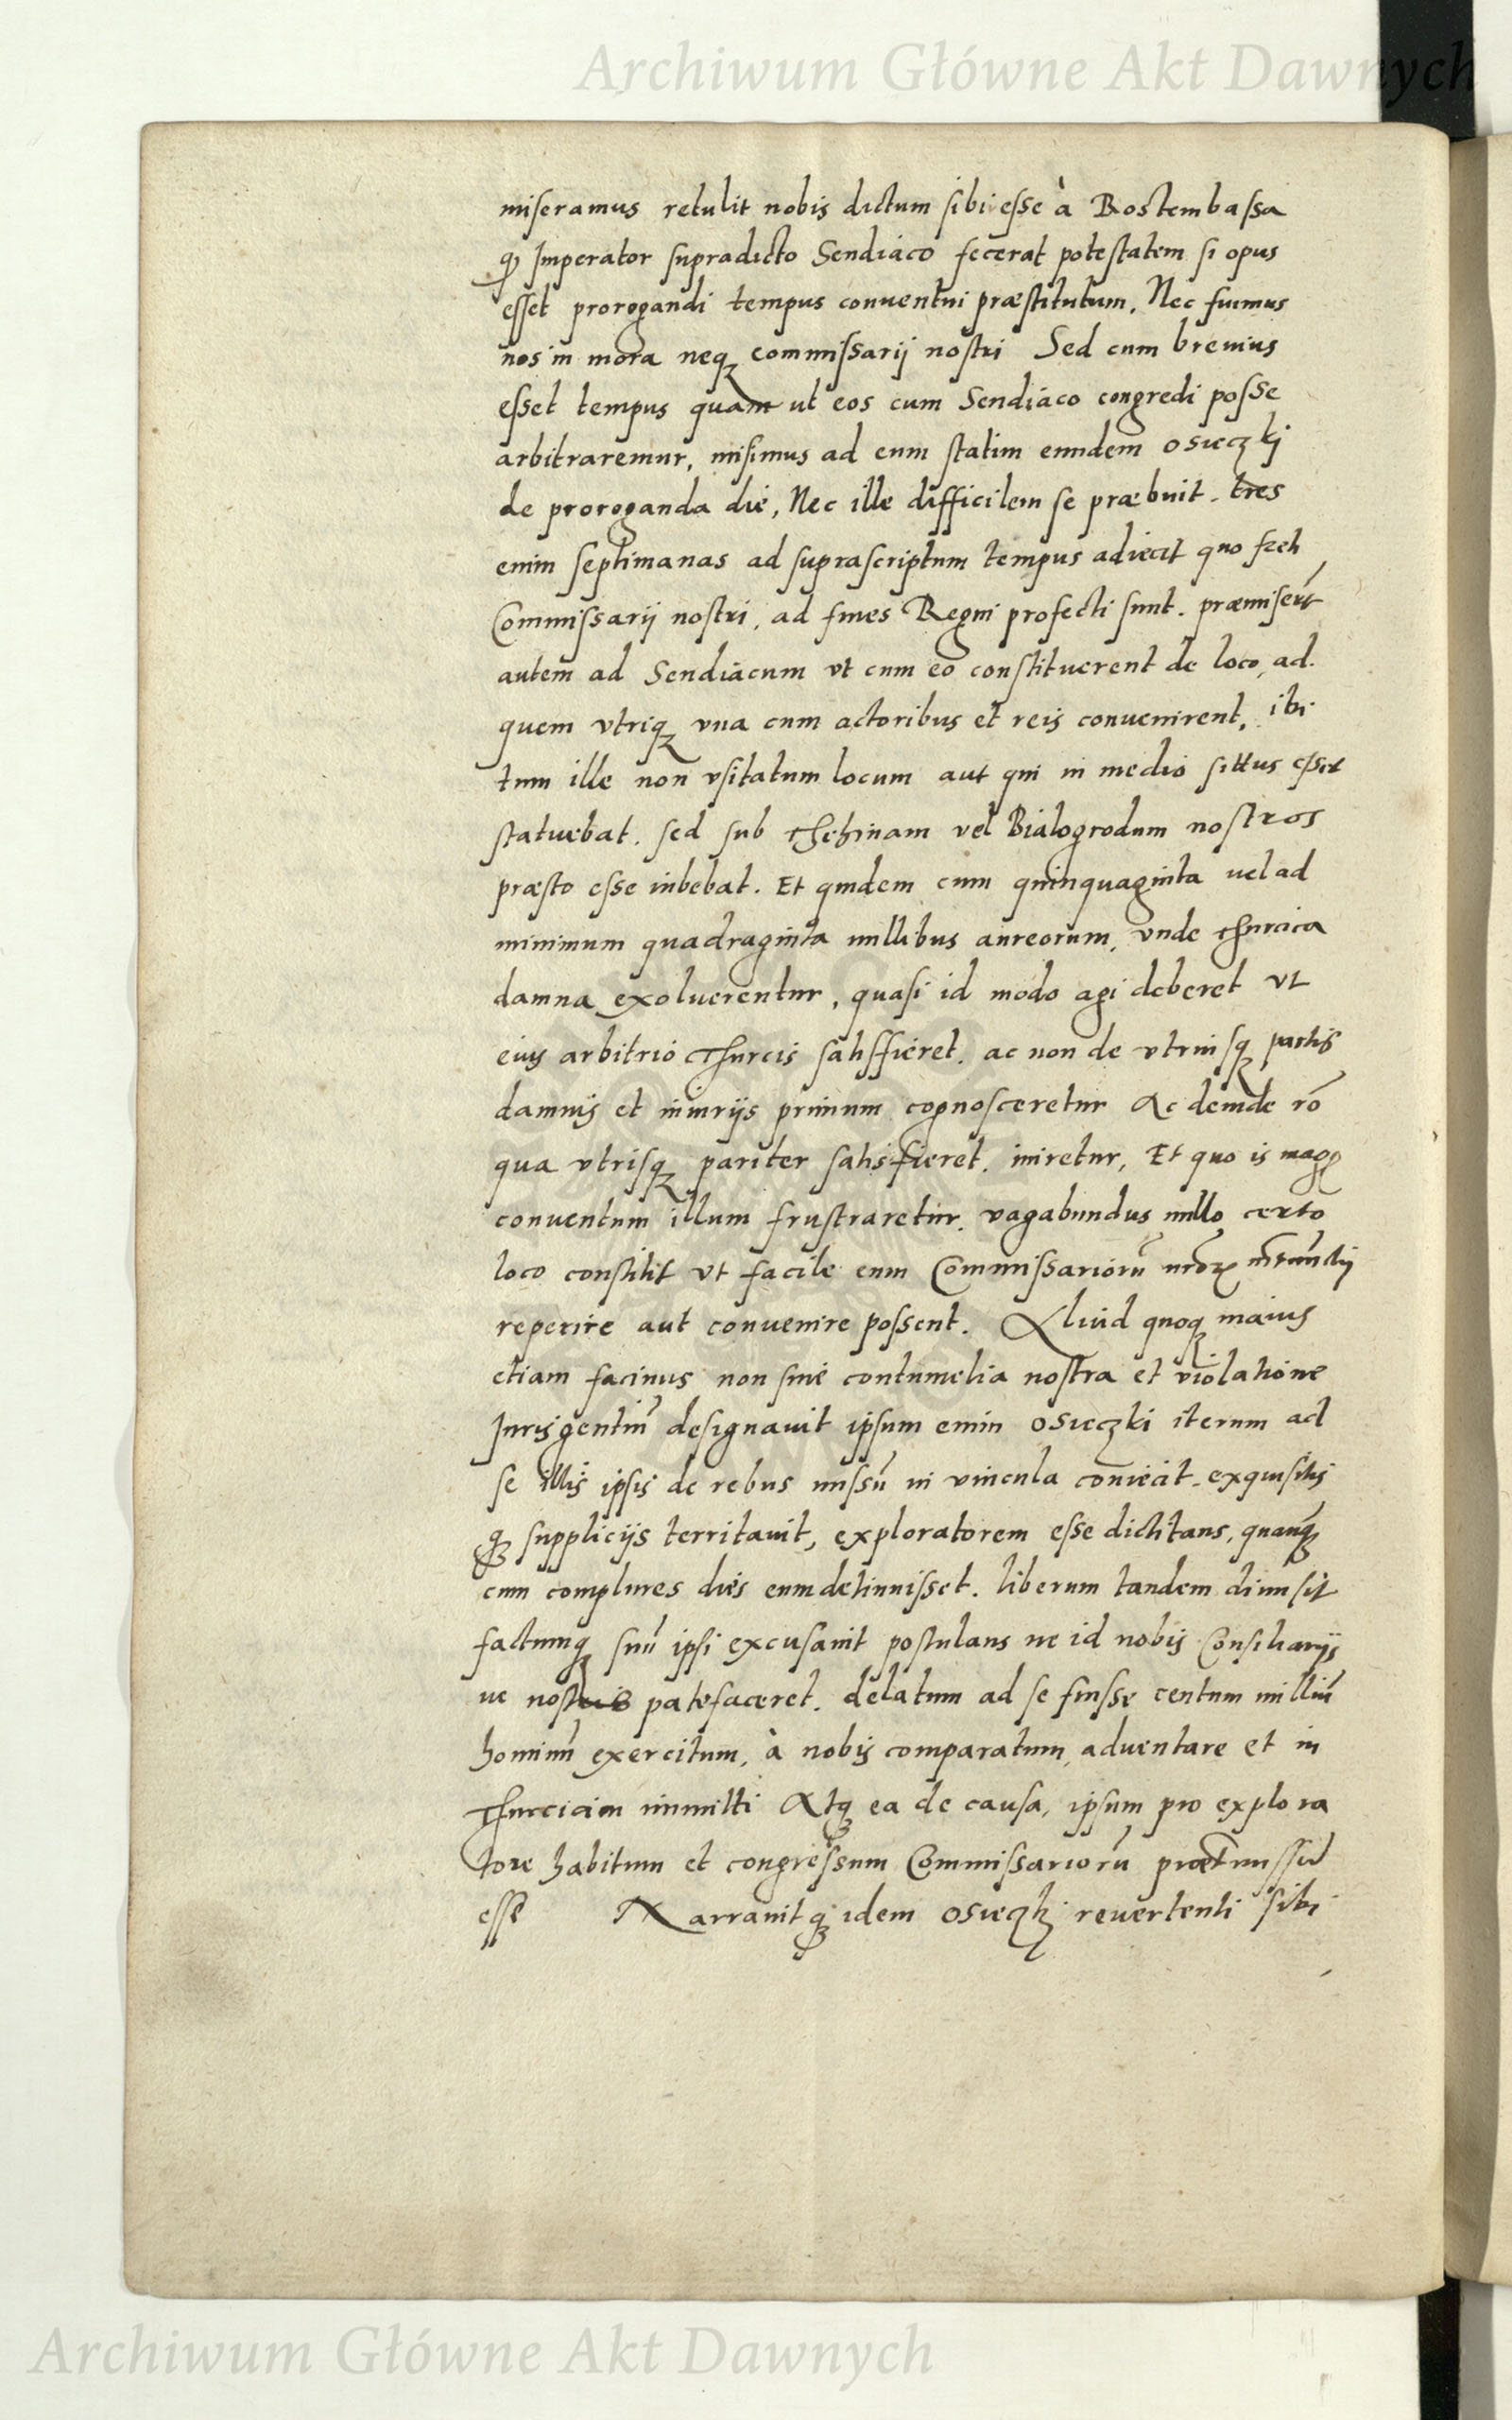 Archiwum Główne Akt Dawnych
miseramus retulit nobis dictum sibi esse à Rostembassa
qđ Imperator supradicto Sendiaco fecerat potestatem si opus
esset prorogandi tempus conuentui præstitutum. Nec fuimus
nos in mora neqȝ commissarij nostri Sed cum breuius
esset tempus quam ut eos cum Sendiaco congredi posse
arbitraremur, misimus ad eum statim eundem osieczkj
de proroganda die, Nec ille difficilem se præbuit. tres
enim septimanas ad suprascriptum tempus adiecit quo freti
Commissarij nostri, ad fines Regni profecti sunt. præmiserūt
autem ad Sendiacum vt cum eo constituerent de loco, ad
quem vtriqȝ vna cum actoribus et reis conuenirent, ibi
tum ille non vsitatum locum aut qui in medio sittus esset
statuebat. sed sub Thehinam vel Bialogrodum nostros
præsto esse iubebat. Et quidem cum quinquaginta uel ad
minimum quadraginta millibus aureorum, vnde Thurcica
damna exoluerentur, quasi id modo agi deberet vt
eius arbitrio Thurcis satisfieret. ac non de vtriusqȝ partis
damnis et iniurijs primum cognosceretur Ac deinde rō
qua vtrisqȝ pariter satisfieret. iniretur, Et quo is magꝭ
conuentum illum frustraretur. vagabundus nullo certo
loco constitit vt facile eum Commissariorū nrōrꝝ internūctij
reperire aut conuenire possent. Aliud quoqȝ maius
etiam facinus non sine contumelia nostra et violatione
Iuris gentiū designauit ipsum enim osieczki iterum ad
se illis ipsis de rebus missū in vincula coniecit. exquisitis
qȝ supplicijs territauit, exploratorem esse dictitans, quanqȝ
cum complures dies eum detinuisset. liberum tandem dimisit
factumqȝ suū ipsi excusauit postulans ne id nobis Consiliarijs
ue nostris patefaceret. delatum ad se fuisse centum milliū
hominū exercitum, à nobis comparatum, aduentare et in
Thurciam immitti Atqȝ ea de causa, ipsum pro explora
tore habitum et congressum Commissariorū prætermissū
esse Narrauitqȝ idem osieczkj reuertenti sibi
Archiwum Główne Akt Dawnych